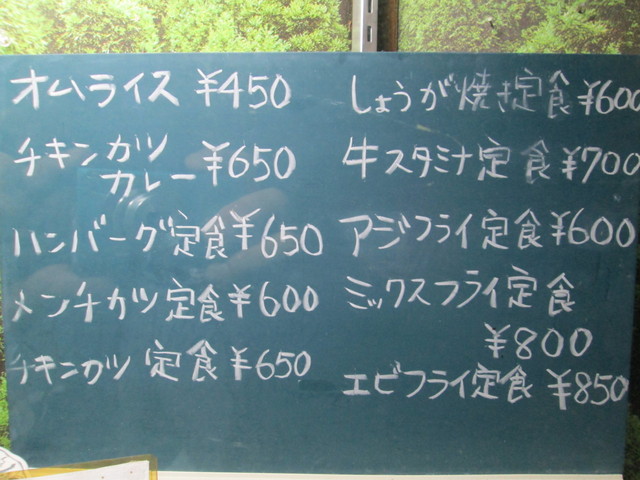 オムライス ¥450
チキンカツ
カレー ¥650
ハンバーグ定食 ¥650
メンチカツ定食 ¥600
チキンカツ 定食 ¥650
しょうが焼き定食 ¥600
牛スタミナ定食 ¥700
アジフライ定食 ¥600
ミックスフライ定食
¥800
エビフライ定食 ¥850